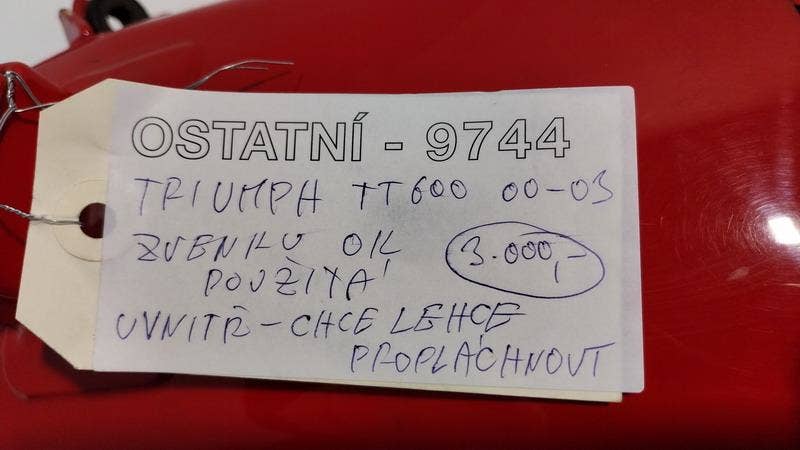 OSTATNÍ - 9744
TRIUMPH TT600 00-03
ZVENKU OK 3.000,-
POUŽITÁ
UVNITŘ - CHCE LEHCE
PROPLÁCHNOUT